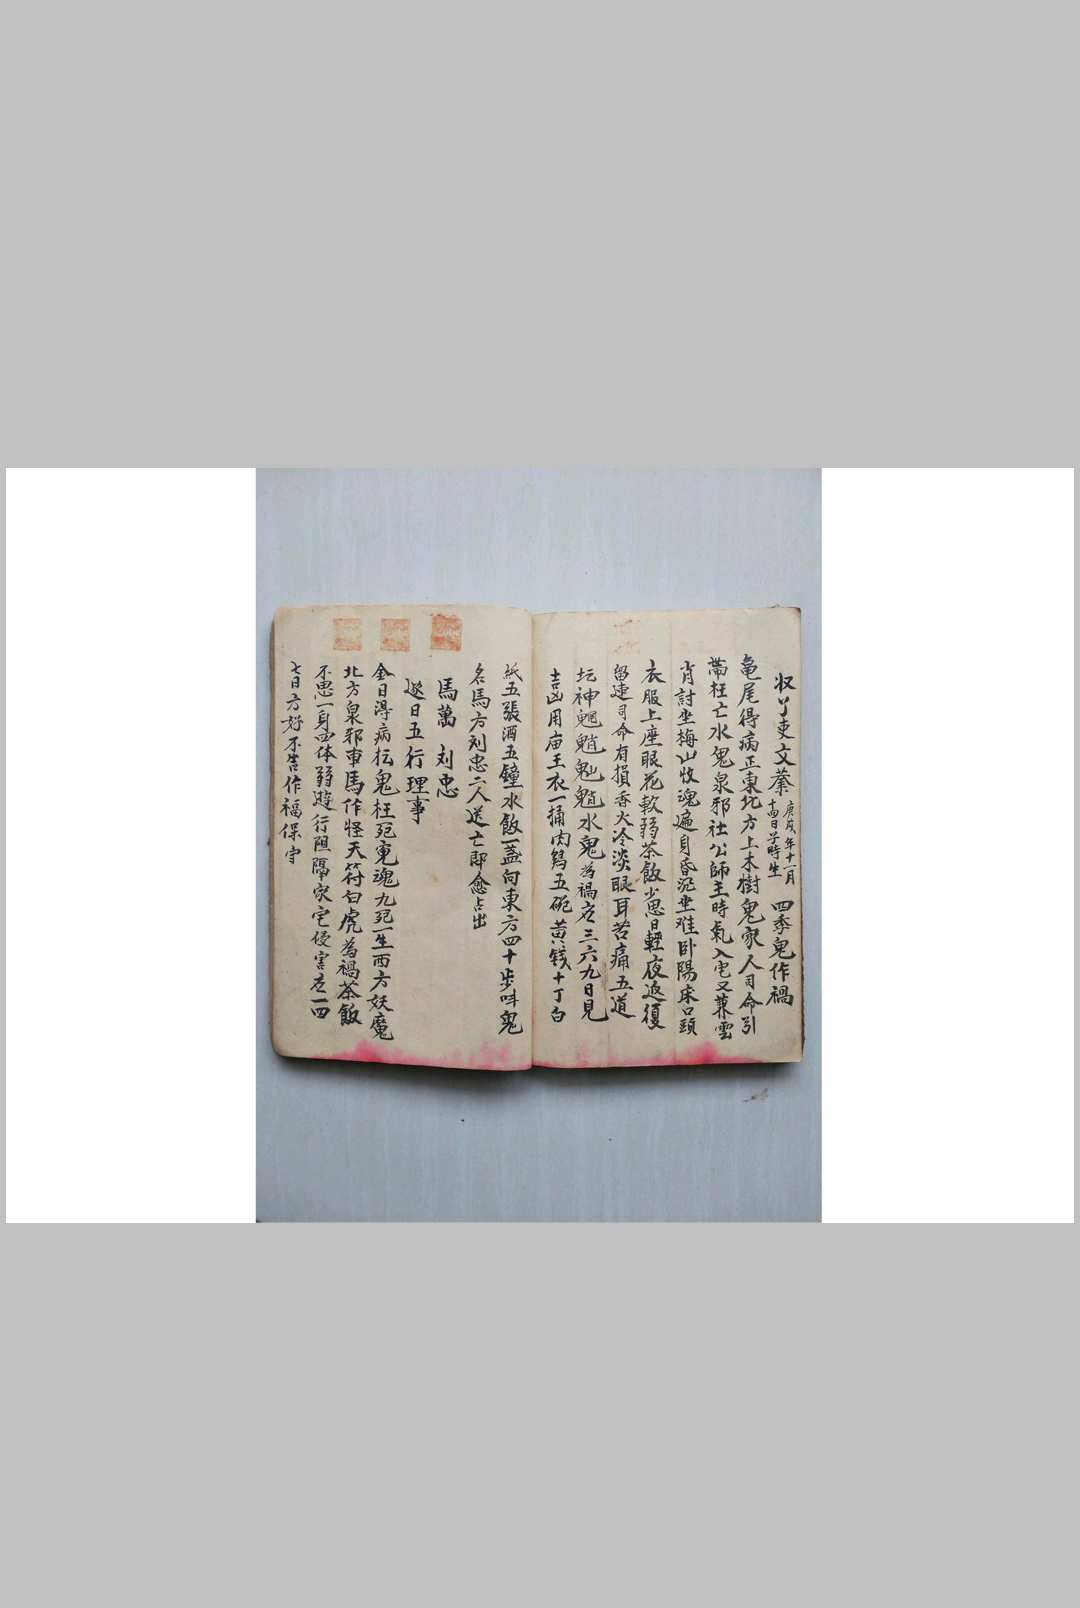 收丫吏文蔂 庚戌年十一月十四日子時生 四季鬼作禍
龟尾得病正東北方上木樹鬼家人司命引
帶枉亡水鬼泉邪社公師主時氣入宅又兼雲
肖討坐梅山收魂遍身昏沉坐难卧陽床口頭
衣服上座眼花軟弱茶飯少思日輕夜返復
留連司命有損香火冷淡眼耳苦痛五道
坛神 水鬼為禍庅三六九日見
吉凶用庙王衣一捅肉鷄五碗黄钱十丁白
紙五張酒五鐘水飯一盖向東方四十步呌鬼
名馬方刘忠二人送亡即愈占出
馬萬 刘忠
逐日五行理事
金日得病坛鬼枉死寃魂九死一生西方妖魔
北方泉邪車馬作怪天符白虎為禍茶飯
不思一身四体弱遊行阻隔家宅侵害庅一四
七日方好不吿作福保守